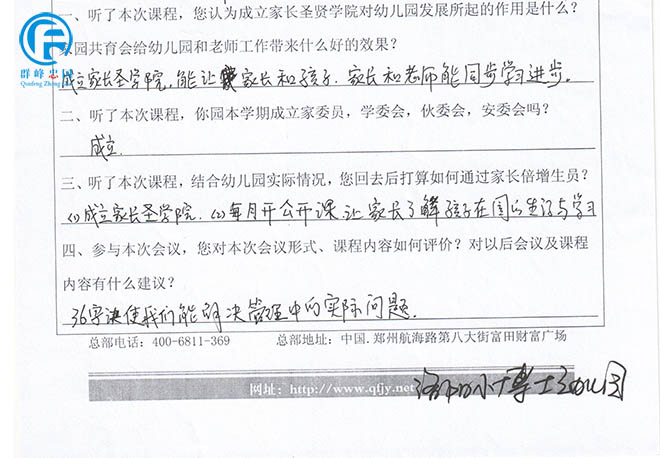 一、听了本次课程，您认为成立家长圣贤学院对幼儿园发展所起的作用是什么?
家园共育会给幼儿园和老师工作带来什么好的效果?
群峰忠
Qunfeng Zhong
成立家长圣学院，能让家长和孩子，家长和老师能同步学习进步。
二、听了本次课程，你园本学期成立家委员，学委会，伙委会，安委会吗?
成立。
三、听了本次课程，结合幼儿园实际情况，您回去后打算如何通过家长倍增生员?
(1)成立家长圣学院，(2)每月开公开课让家长了解孩子在园的生活与学习
四、参与本次会议，您对本次会议形式、课程内容如何评价? 对以后会议及课程
内容有什么建议?
36字诀使我们能解决管理中的实际问题。
总部电话：400-6811-369 总部地址：中国.郑州航海路第八大街富田财富广场
网址：http://www.qfjy.net
洛阳小博士幼儿园